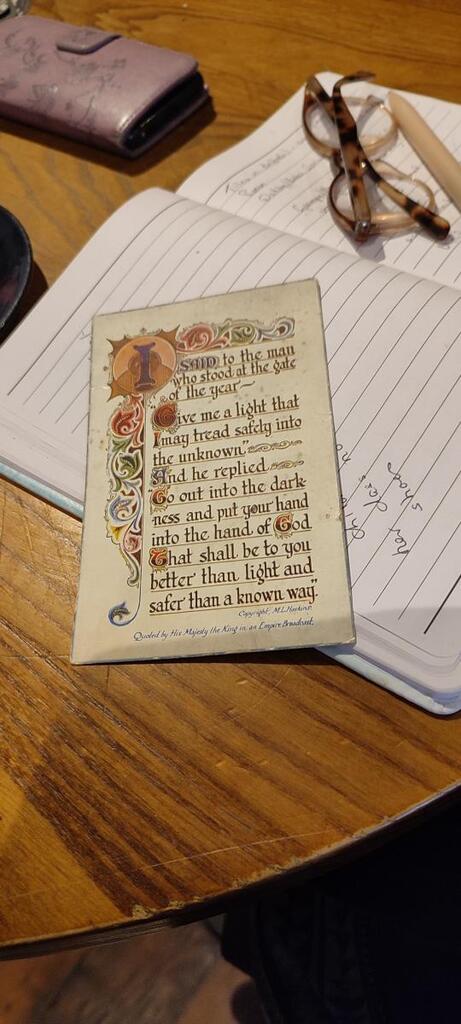 I SAID to the man
who stood at the gate
of the year~
"Give me a light that
I may tread safely into
the unknown"
And he replied
Go out into the dark-
ness and put your hand
into the hand of God
That shall be to you
better than light and
safer than a known way."
Copyright, M.L. Haskins.
Quoted by His Majesty the King in an Empire Broadcast.